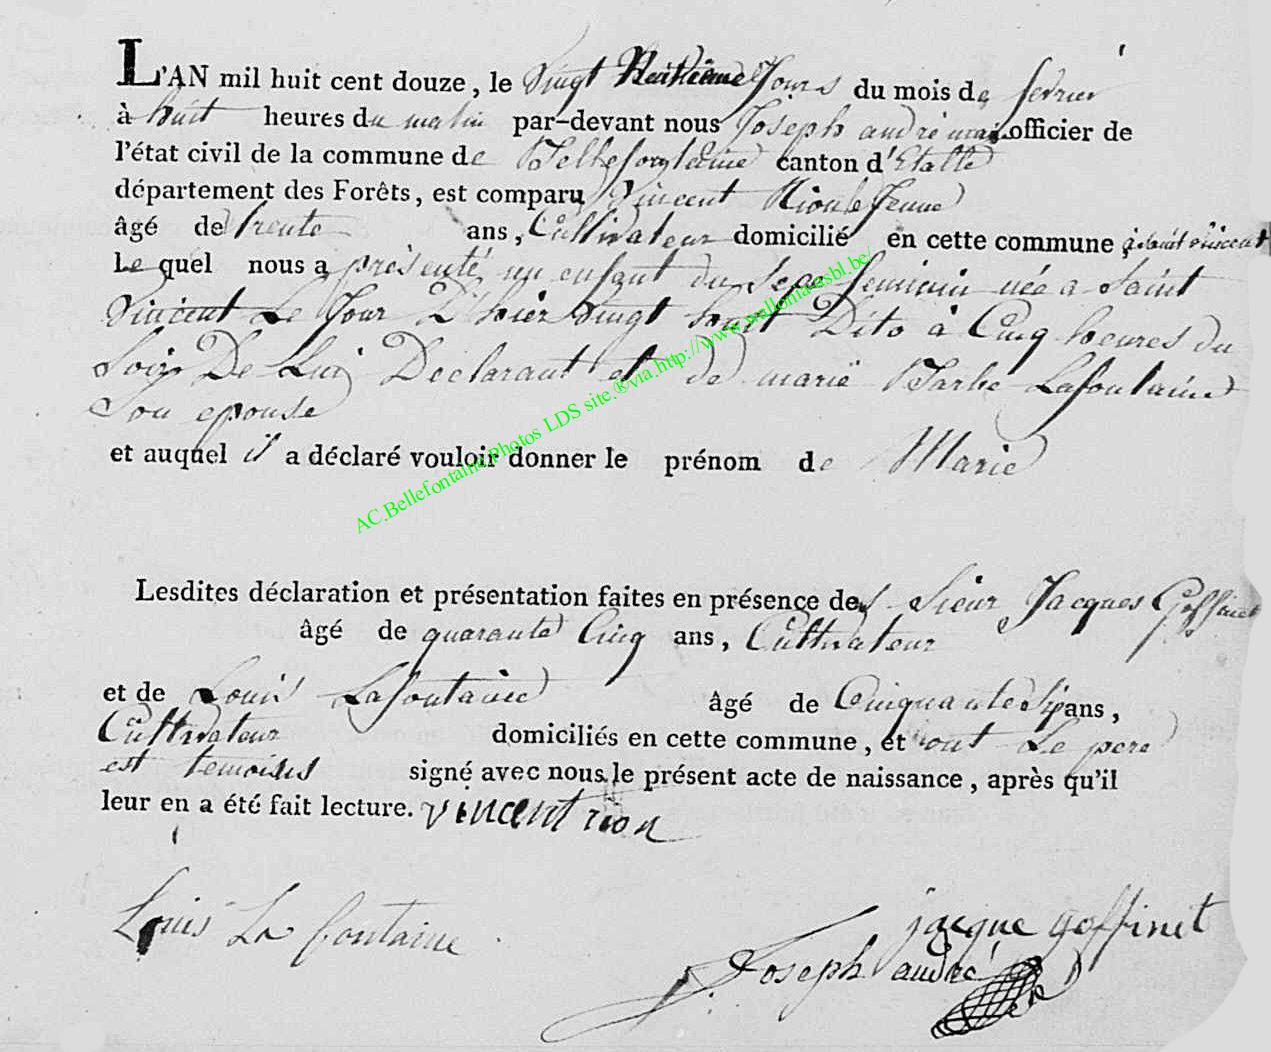 L'AN mil huit cent douze, le Vingt Huitieme Jours du mois de fevrier
à huit heures du matin par-devant nous Joseph andré maire officier de
l'état civil de la commune de Bellefontaine canton d'Etalle
département des Forêts, est comparu Vincent Rion le Jeune
âgé de trente ans, Cultivateur domicilié en cette commune à saint vincent
Le quel nous a présenté un enfant du Sexe feminin née a Saint
Vincent Le Jour D'hier Vingt huit Dito à Cinq heures du
Soir De Lui Déclarant et de marië Barbe Lafontaine
Son epouse
et auquel il a déclaré vouloir donner le prénom de Marie
Lesdites déclaration et présentation faites en présence des Sieur Jacques Goffinet
âgé de quarante Cinq ans, Cultivateur
et de Louis Lafontaine âgé de Cinquante Six ans,
Cultivateur domiciliés en cette commune, et ont Le pere
est temoins signé avec nous le présent acte de naissance, après qu'il
leur en a été fait lecture. vincent rion
Louis La fontaine
jacque goffinet
Joseph andré
AC.Bellefontaine.Photos LDS site.®via http://www.wallonia-asbl.be/